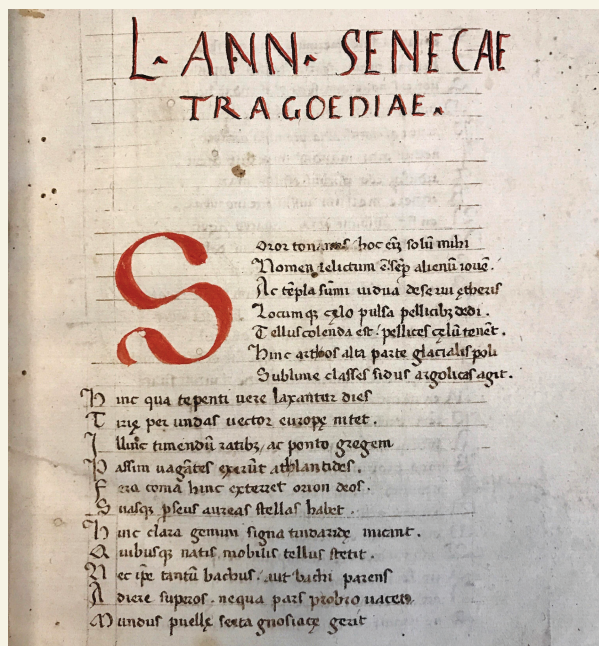 L. ANN. SENECAE
TRAGOEDIAE.
Soror tonantis hoc eni solu mihi
Nomen relictum e. sep alienu ioue.
Ac tepla sumi uidua deserui etheris
Locumq; celo pulsa pellicib; dedi.
Tellus colenda est: pellices celu tenet.
Hinc arthos alta parte glacialis poli
Sublime classes sidus argolicas agit.
Hinc qua tepenti uere laxantur dies
Tirie per undas uector europe nitet.
Illinc timendu ratib; ac ponto gregem
Passim uagates exerut athlantides.
Fera coma hinc exterret orion deos.
Suasq; pseus aureas stellas habet.
Hinc clara gemini signa tindaride micant.
Quibusq; natis mobilis tellus stetit.
Nec ipe tantu bachus, aut bachi parens
Adiere superos. nequa pars probro uacet
Mundus puelle serta gnosiace gerit